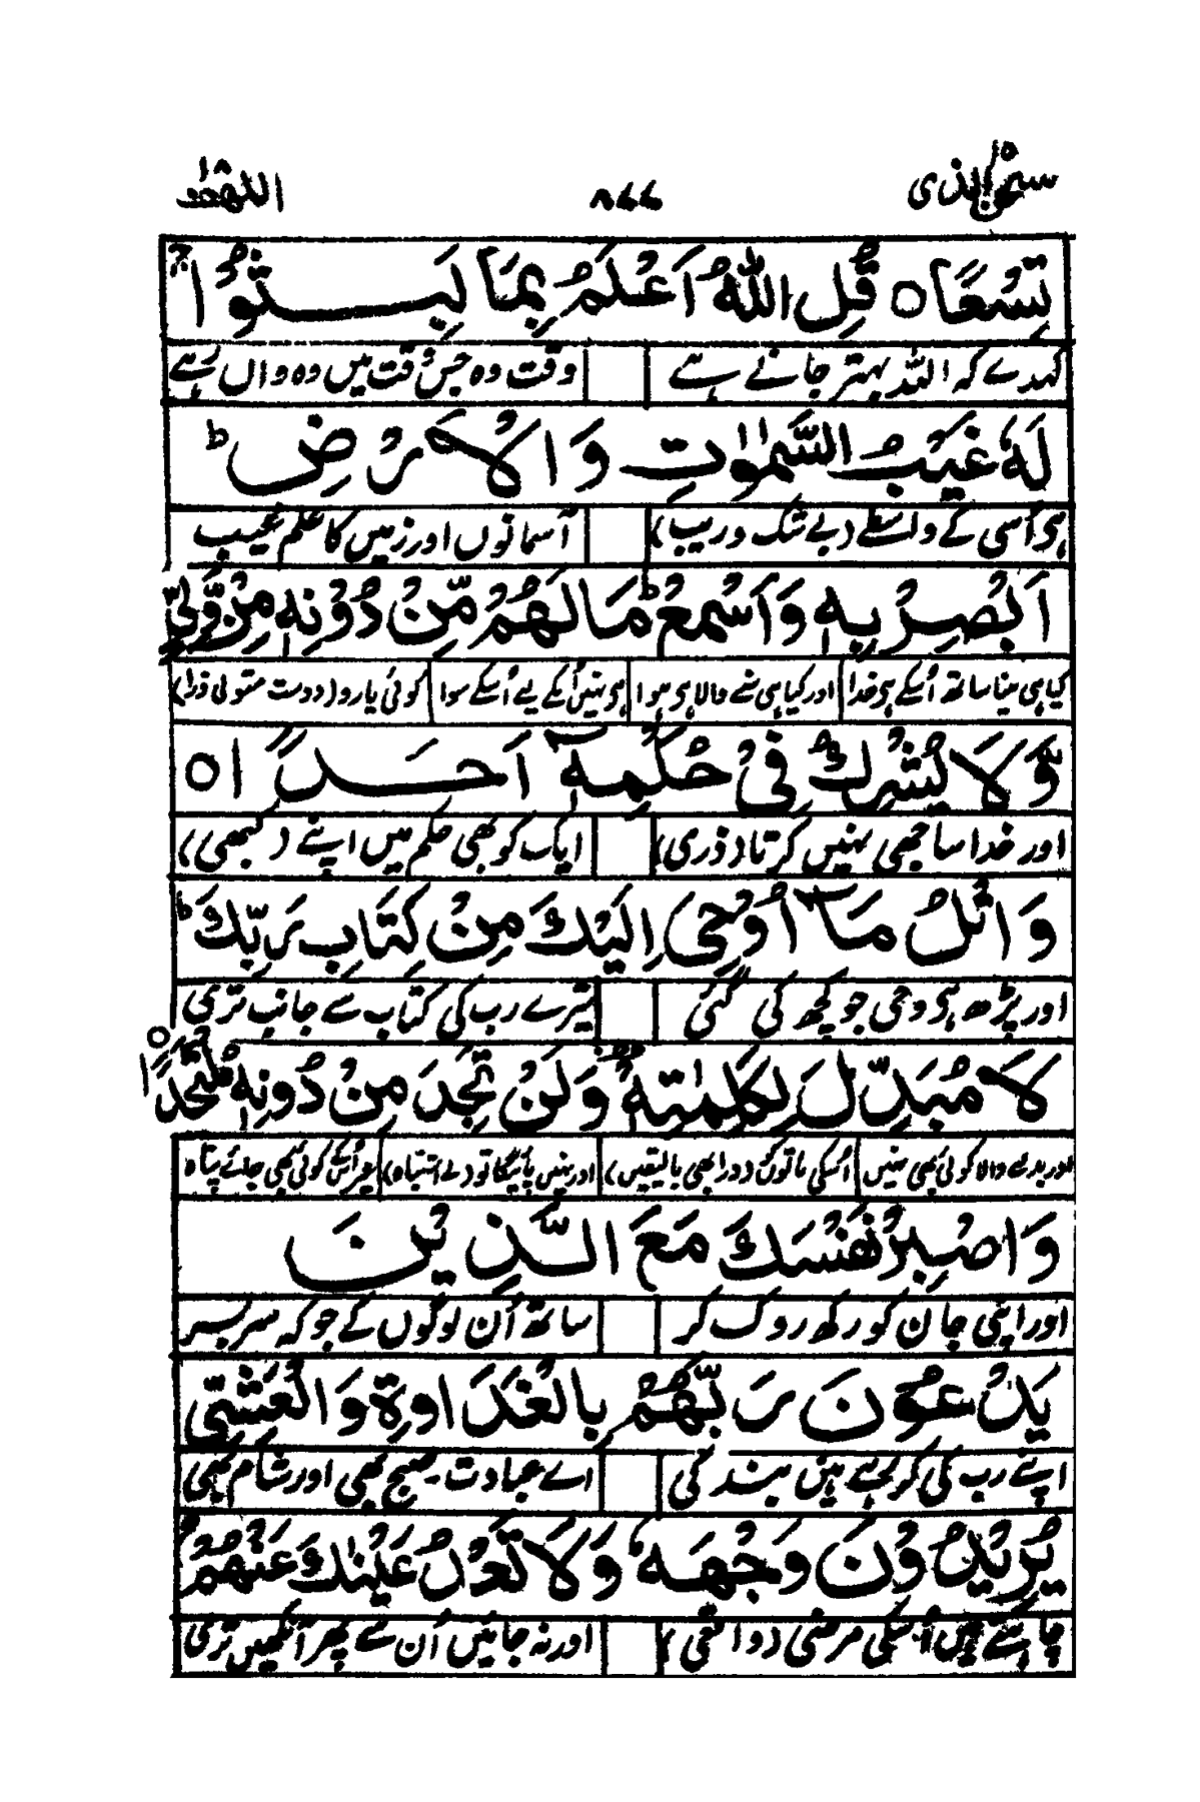 سبحن الذی ١٥
٨٧٧
الکھف ١٨
تِسْعًا ۝ قُلِ اللّٰهُ اَعْلَمُ بِمَا لَبِثُوْا ۚ
کہدے کہ اللہ بہتر جانے ہے وقت وہ جس وقت میں وہ واں رہے
لَهٗ غَيْبُ السَّمٰوٰتِ وَالْاَرْضِ ؕ
ہی اُسی کے واسطے (بے شک و ریب) آسمانوں اور زمیں کا علم غیب
اَبْصِرْ بِهٖ وَاَسْمِعْ ؕ مَا لَهُمْ مِّنْ دُوْنِهٖ مِنْ وَّلِيٍّ
کیا ہی بینا ساتھ اُسکے ہی خدا اور کیا ہی سننے والا ہی ہوا ہی نہیں اُنکے لیے اُسکے سوا کوئی یار و (دوست متولی ذرا)
وَّلَا يُشْرِكُ فِيْ حُكْمِهٖۤ اَحَدًا ۝
اور خدا ساجھی نہیں کرتا (ذری) ایک کو بھی حکم میں اپنے (کبھی)
وَاتْلُ مَاۤ اُوْحِيَ اِلَيْكَ مِنْ كِتَابِ رَبِّكَ ؕ
اور پڑھ ہی وحی جو کچھ کی گئی تیرے رب کی کتاب سے جانب تری
لَا مُبَدِّلَ لِكَلِمٰتِهٖ ؕ وَلَنْ تَجِدَ مِنْ دُوْنِهٖ مُلْتَحَدًا ۝
اور بدلنے والا کوئی بھی نہیں اُسکی باتوں کو (ذرا بھی بالیقیں) اور نہیں پائیگا تو (بے اشتباہ) غیر اُسکے کوئی بھی جائے پناہ
وَاصْبِرْ نَفْسَكَ مَعَ الَّذِيْنَ
اور اپنی جان کو رکھ روک کر ساتھ اُن لوگوں کے جو کہ سر بسر
يَدْعُوْنَ رَبَّهُمْ بِالْغَدَاوةِ وَالْعَشِيِّ
اپنے رب کی کرتے ہیں بندگی اے عبادت صبح بھی اور شام بھی
يُرِيْدُوْنَ وَجْهَهٗ وَلَا تَعْدُ عَيْنٰكَ عَنْهُمْ ۚ
چاہتے ہیں اُسکی مرضی (واقعی) اور نہ جائیں اُن سے پھر آنکھیں تری